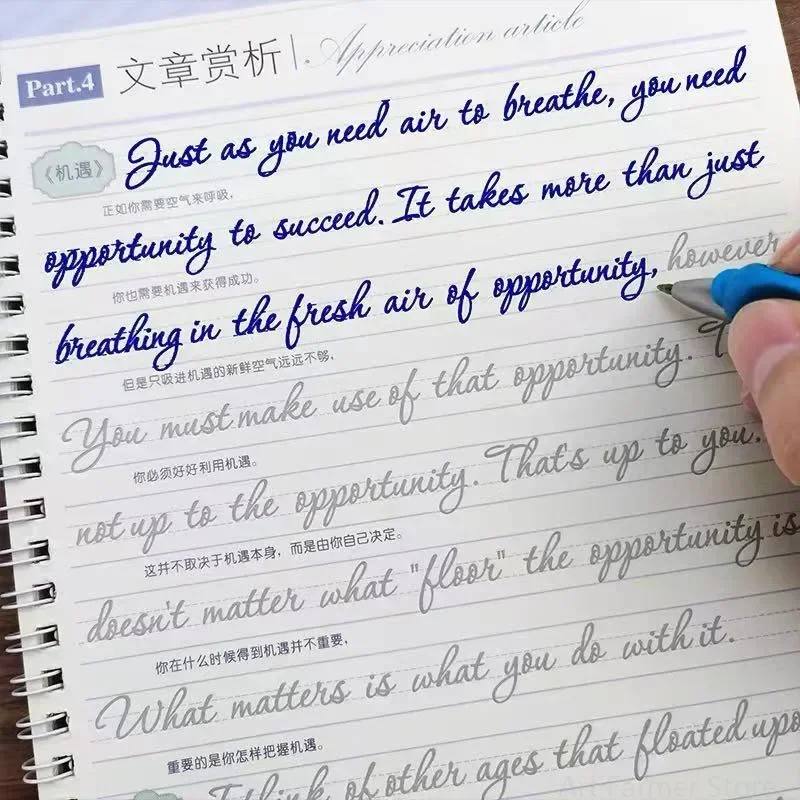 Part.4 文章赏析 Appreciation article
《机遇》 Just as you need air to breathe, you need
正如你需要空气来呼吸，
opportunity to succeed. It takes more than just
你也需要机遇来获得成功。
breathing in the fresh air of opportunity, however
但是只吸进机遇的新鲜空气远远不够，
You must make use of that opportunity.
你必须好好利用机遇。
not up to the opportunity. That's up to you.
这并不取决于机遇本身，而是由你自己决定。
doesn't matter what "floor" the opportunity is
你在什么时候得到机遇并不重要，
What matters is what you do with it.
重要的是你怎样把握机遇。
think of other ages that floated upo
Art Farmer Store